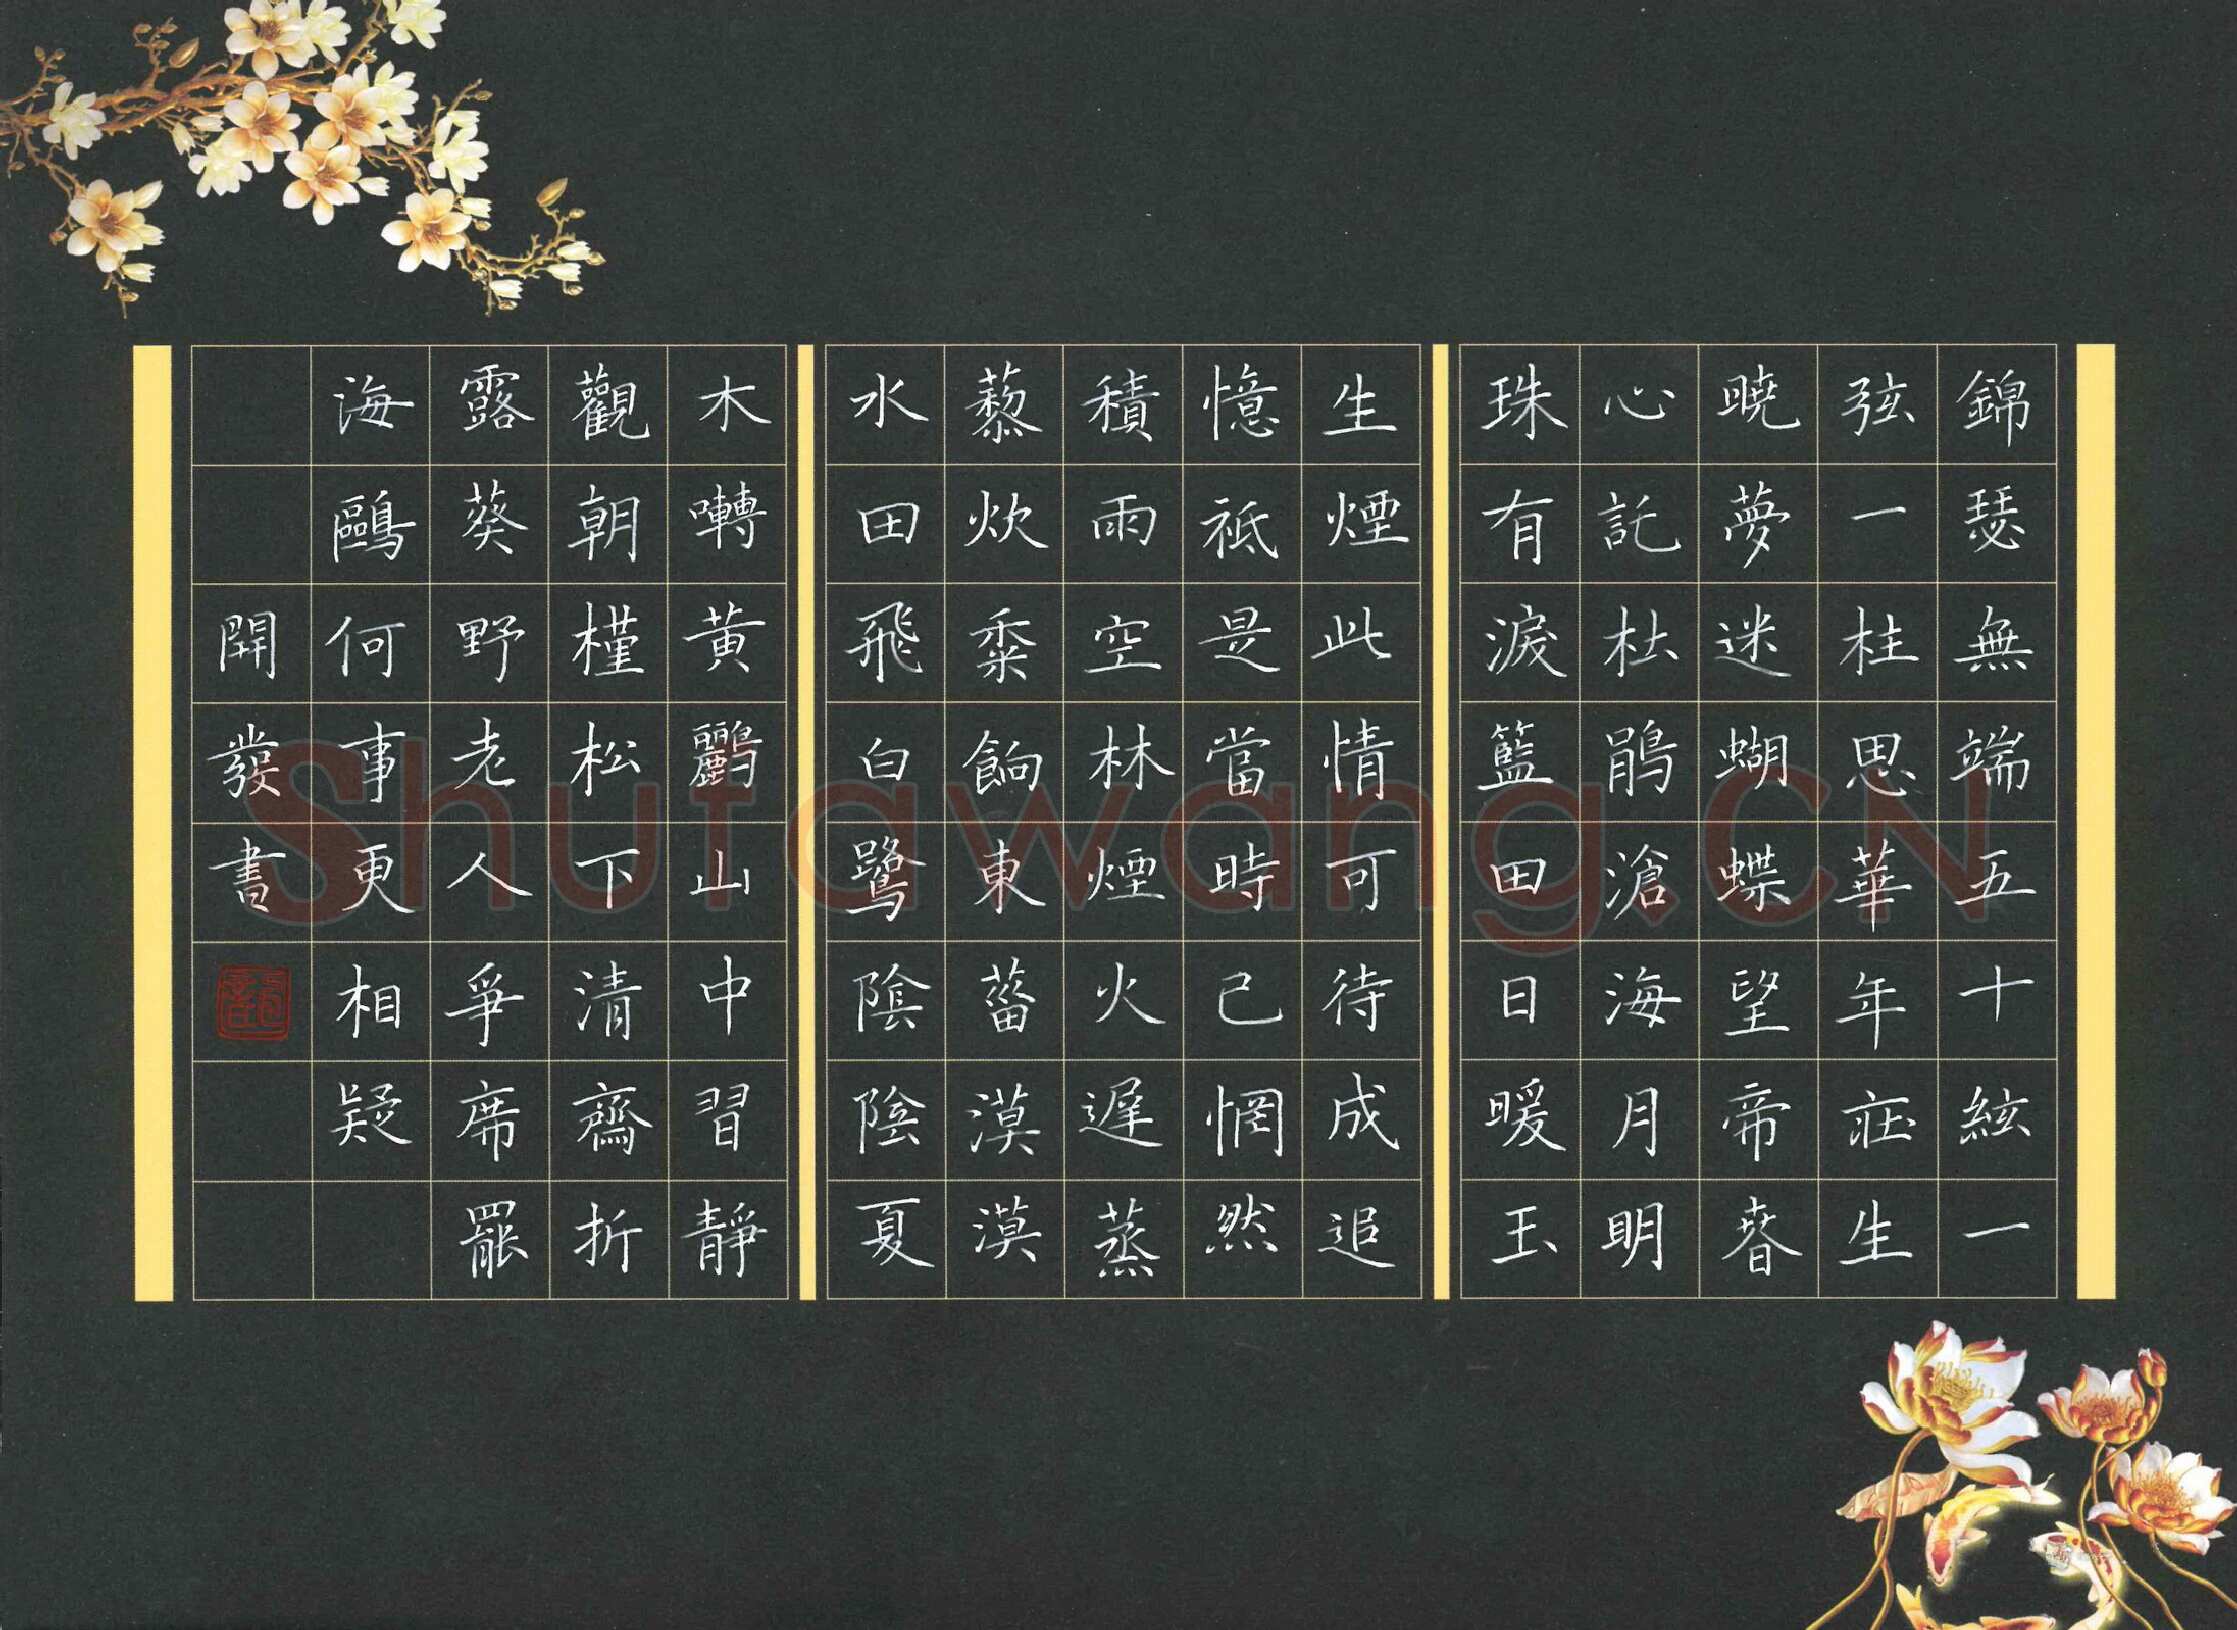 錦瑟無端五十絃一
弦一柱思華年庒生
曉夢迷蝴蝶望帝春
心託杜鵑滄海月明
珠有淚籃田日暖玉
生煙此情可待成追
憶祗是當時已惘然
積雨空林煙火遲蒸
藜炊黍餉東菑漠漠
水田飛白鷺陰陰夏
木囀黃鸝山中習靜
觀朝槿松下清齋折
露葵野老人爭席罷
海鷗何事更相疑
開發書
Shufawang.CN